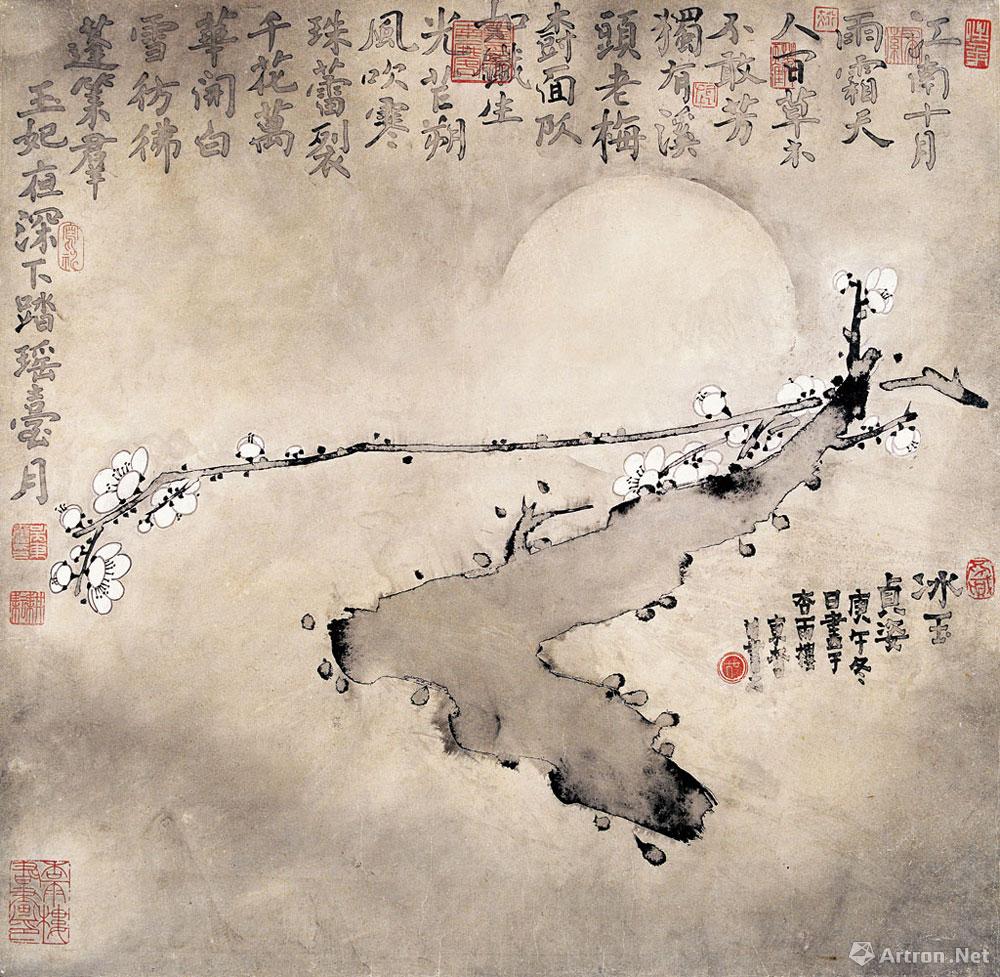 江南十月
雨霜天
人百草木
不敢芳
獨有溪
頭老梅
面
如鐵生
光芒朔
風吹寒
珠蕾裂
千花萬
華開白
雪彷彿
蓬萊羣
玉妃夜深下踏瑤臺月
冰玉
貞姿
庚午冬
日畫于
杏雨樓
Artron.Net